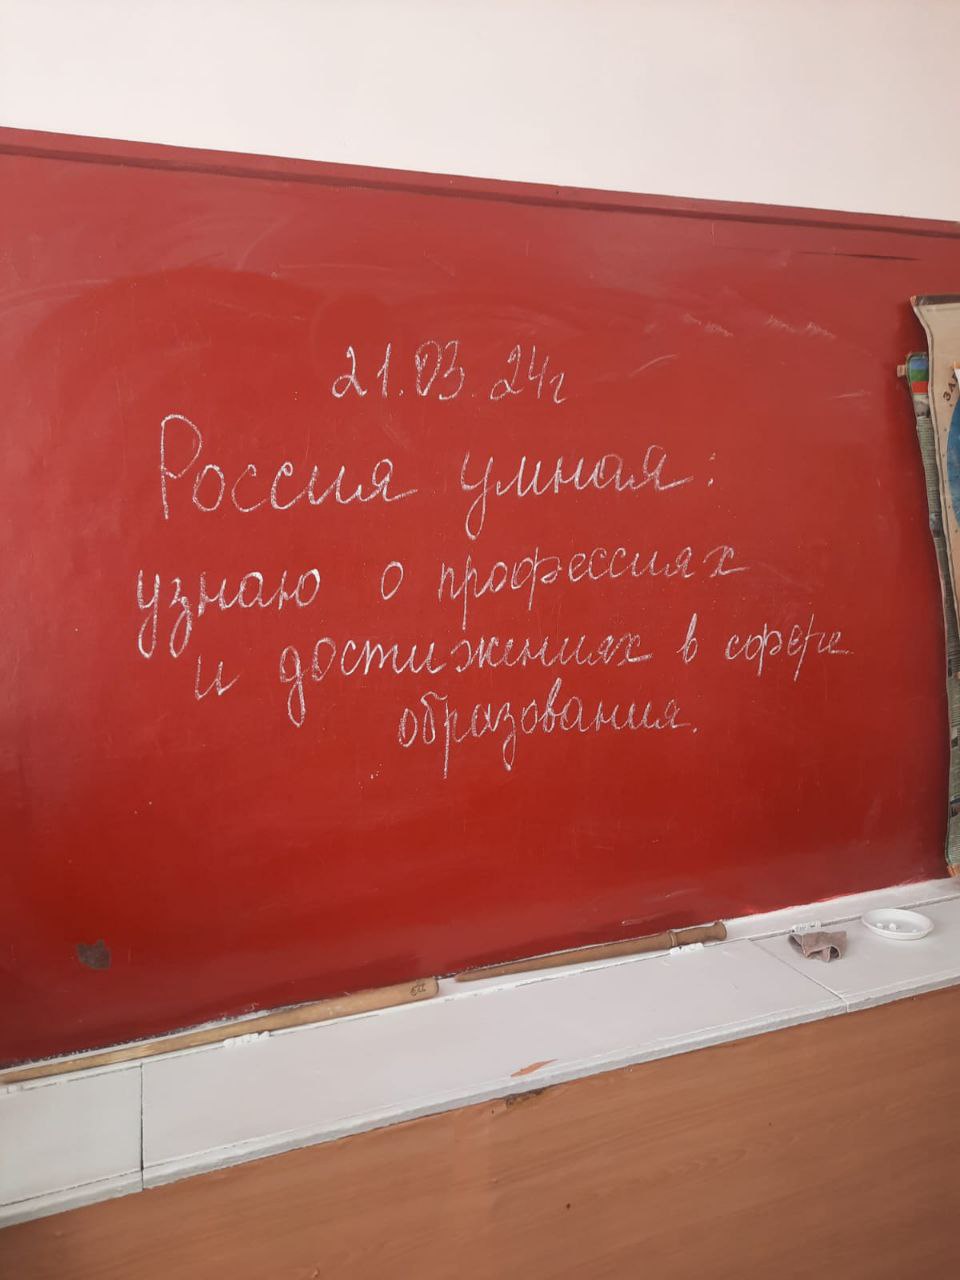 21.03.24г
Россия умная:
узнаю о профессиях
и достижениях в сфере
образования.